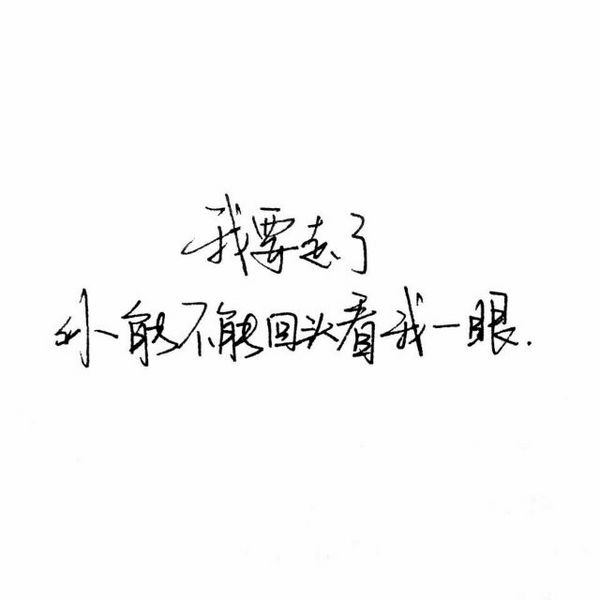 我要走了
你能不能回头看我一眼.